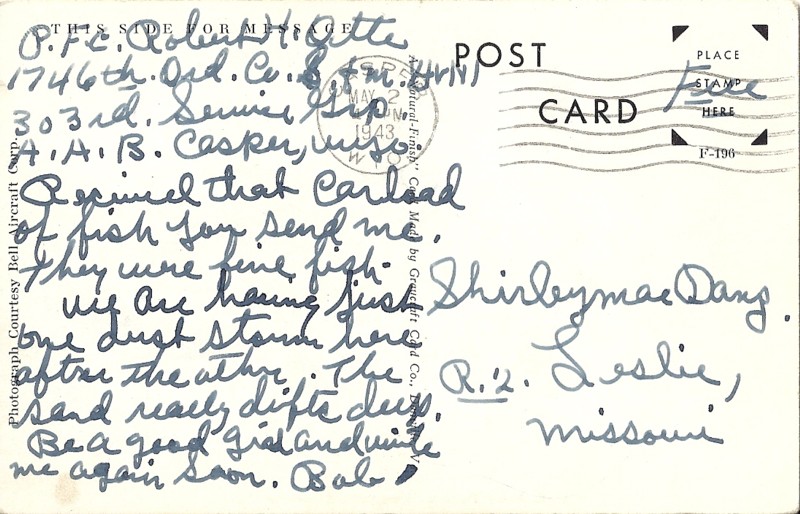 THIS SIDE FOR MESSAGE
P.F.C. Robert H. Otte
1746th. Ord. Co. S. & M.
303rd. Service Grp.
A.A.B. Casper, Wyo.
Recived that Carload
of fish you send me.
They were fine fish.
We are having just
one dust storm here
after the other. The
sand really difts deep.
Be a good girl and write
me again soon. Bob
Photograph Courtesy Bell Aircraft Corp.
"Natural-Finish" Card Made by Graycraft Card Co., Danville, V
CASPER
MAY 2
PM
1943
WYO.
POST
CARD
PLACE
STAMP
HERE
F-196
Free
Shirleymae Danz.
R.2. Leslie,
Missouri